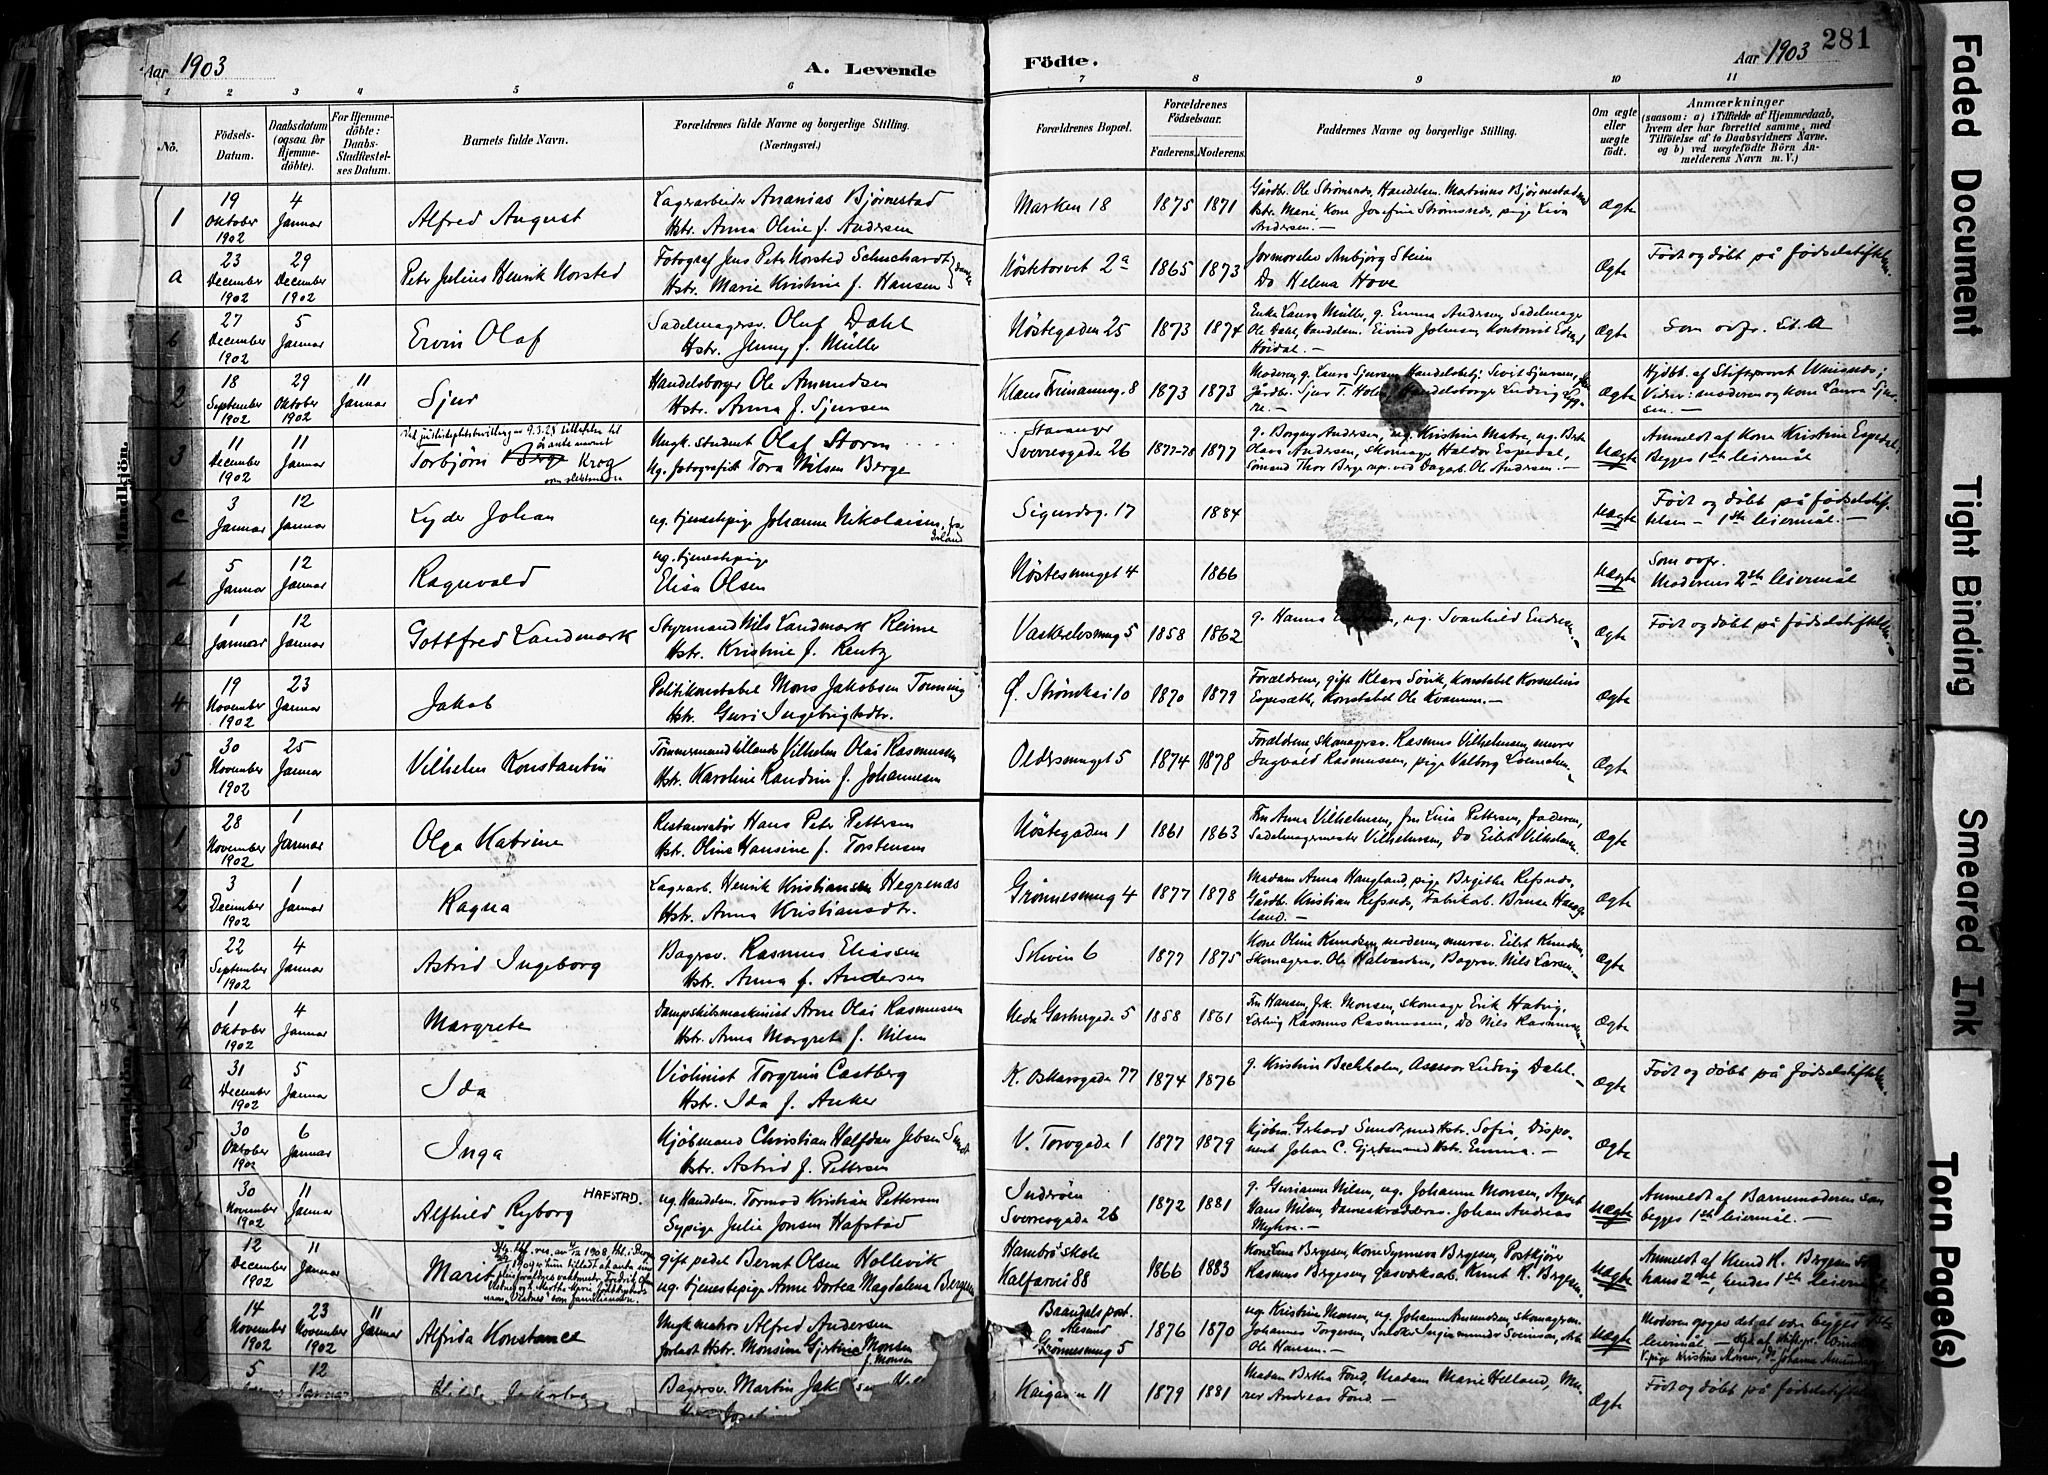 Aar 1903
A. Levende
Födte.
Aar 1903
281
1 2 3 4 5 6 7 8 9 10 11
No.
Födsels-Datum.
Daabsdatum (ogsaa for Hjemme-döbte).
For Hjemme-döbte: Daabs-Stadfæstel-ses Datum.
Barnets fulde Navn.
Forældrenes fulde Navne og borgerlige Stilling. (Næringsvei.)
Forældrenes Bopæl.
Forældrenes Födselsaar.
Faderens. Moderens.
Faddernes Navne og borgerlige Stilling.
Om ægte eller uægte födt.
Anmærkninger
(saasom: a) i Tilfælde af Hjemmedaab, hvem der har forrettet samme, med Tilföielse af to Daabsvidners Navne, og b) ved uægtefödte Börn An-melderens Navn m. V.)
1 19 Oktober 1902 4 Januar Alfred August
Lagerarbeider Ananias Bjørnestad
Hstr. Anna Oline f. Andersen
Marken 18 1875 1871
Gårdbr. Ole Strømsnes, Handelsm. Mathias Bjørnestad med
Hstr. Marie, Kone Josefine Strømsnes, pige Lova
Andersen.—
Ægte
a 23 December 1902 29 December 1902 Peter Julius Henrik Norsted
Fotograf Jens Peter Norsted Schuchardt
Hstr. Marie Kristine f. Hansen
Nöstetorvet 2a 1865 1873
Jormoreles Anbjørg Steien
Do Helena Hove
Ægte
Født og døbt på fødselsstiftelsen.
b 27 December 1902 5 Januar Ervin Olaf
Sadelmagersv. Oluf Dahl
Hstr. Jenny f. Müller
Nöstegaden 25 1873 1874
Enke Laura Müller, g. Emma Andersen, Sadelmager
Ole Dahl, Handelsm. Eivind Johnsen, Kontorist
Höidal.—
Ægte
Som ovfr. Lit. A
2 18 September 1902 29 Oktober 1902 11 Januar Sjur
Handelsborger Ole Amundsen
Hstr. Anna f. Sjursen
8 1873 1873
Moderen, g. Laura Sjursen, Handelsbetj. Sivit Sjursen,
Gårdbr. Sjur T. Holm, Handelsborger Ludvig
Ægte
Hjdbt. af Stiftsprovst
Vidner: moderen og kone Laura Sjur-
sen.—
3 11 December 1902 11 Januar Torbjörn Berge Krog
Ved justisdeptsbevilling av 9.3.28 tillatelse til
å anta navnet
som slektsnavn
Ungk. student Olaf Storm
Ug. fotografist Tora Nilsen Berge
Stavanger
Sverresgade 26 1877-78 1877
g. Borgny Andersen, ug. Kristine Matre, ug. Berta
Olava Andersen, skomager Haldor Espedal,
Sömand Thor Berge rep. ved Dagarb. Ole Andersen.—
Uægte
Anmeldt af Kone Kristine Espedal,
Begges 1ste leiermål
c 3 Januar 12 Januar Lyder Johan
ug. tjenestepige Johanne Nikolaisen,
Sigurdsg. 17 1884
Uægte
Født og døbt på fødselsstif-
telsen — 1ste leiermål.—
d 5 Januar 12 Januar Ragnvald
ug. tjenestepige
Elisa Olsen
Nöstesmuget 4 1866
Uægte
Som ovfr.
Moderens 2det leiermål
e 1 Januar 12 Januar Gottfred Landmark
Styrmand Nils Landmark Reime
Hstr. Kristine f. Rentz
5 1858 1862
g. Hanna ug. Svanhild Endresen
Ægte
Født og døbt på fødselsstiftelsen
4 19 November 1902 23 Januar Jakob
Politikonstabel Mons Jakobsen Tonning
Hstr. Guri Ingebrigtsdtr.
Ø. Strömkai 10 1870 1879
Forældrene, gift Klara Sörik, Konstabel Kornelius
Espesæth, Konstabel Ole Kvamme.—
Ægte
5 30 November 1902 25 Januar Vilhelm Konstantin
Tömmermand Vilhelm Olai Rasmussen
Hstr. Karoline Randine f. Johannesen
Oldersmuget 5 1874 1878
Forældrene, skomagersv. Rasmus Vilhelmsen, murer
Ingvald Rasmussen, pige Valborg
Ægte
1 28 November 1902 1 Januar Olga Katrine
Restauratør Hans Peter Pettersen
Hstr. Oline Hansine f. Torstensen
Nöstegaden 1 1861 1863
Fru Anna Vilhelmsen, frn Lina Pettersen, faderen,
Sadelmagermester Vilhelmsen, Do Eilert Vilhelmsen.
Ægte
2 3 December 1902 1 Januar Ragna
Lagerarb. Henrik Kristiansen Hegrenæs
Hstr. Anna Kristiansdtr.
Grönnesmug 4 1877 1878
Madam Anna Haugland, pige Birgithe Refsnes,
Gårdbr. Kristian Refsnes, Fabrikarb. Brune Haug-
land.—
Ægte
3 22 September 1902 4 Januar Astrid Ingeborg
Bagersv. Rasmus Eliassen
Hstr. Anna f. Andersen
Skiven 6 1877 1875
Kone Oline Knudsen, moderen, mursv. Eilert Knudsen,
Skomagersv. Ole Halvorsen, Bagersv. Nils Larsen.—
Ægte
4 1 Oktober 1902 4 Januar Margrete
Dampskibsmaskinist Arne Olai Rasmussen
Hstr. Anna Margrete f. Nilsen
Nedre Garbergade 5 1858 1861
Fru Hansen, Frk. Monsen, skomager Erik Hatvig,
Lærling Rasmus Rasmussen, Do Nils Rasmussen
Ægte
a 31 December 1902 5 Januar Ida
Violinist Torgrim Castberg
Hstr. Ida f. Anker
K. Oskarsgade 77 1874 1876
g. Kristine Bechholm, Assessor Ludvig Dahl.—
Ægte
Født og døbt på fødselsstiftelsen.
5 30 Oktober 1902 6 Januar Inga
Kjöbmand Christian Halfdan Jebsen Sundt
Hstr. Astrid f. Pettersen
V. Torvgade 1 1877 1879
Kjöbm. Gerhard Sundt med Hstr. Sofie, Dispo-
nent Johan C. Gjertsen med Hstr. Emma.—
Ægte
6 30 November 1902 11 Januar Alfhild Ryborg HAFSTAD.
ug. Handelsm. Tormod Kristian Pettersen
Sypige Julie Jonsen Hafstad
Indröen
Sverresgade 26 1872 1881
g. Gurianne Nilsen, ug. Johanne Monsen, Agent
Hans Nilsen, Dameskrædersv. Johan Andreas
Myhre.—
Uægte
Anmeldt af Barnemoderen som
begges 1ste leiermål.—
7 12 December 1902 11 Januar Marit
gift pedel Bernt Olsen Hollevik
ug. tjenestepige Anne Dortea Magdalena Bergesen
Hambrö skole
Kalfarvei 88 1866 1883
Kone Lina Bergesen, Kone Synneva Bergesen, Postkjörer
Rasmus Bergesen, Gasværksarb. Knut K. Bergesen.
Uægte
Anmeldt af Knud K. Bergesen som
hans 2det, hendes 1ste leiermål
8 14 November 1902 23 November 1902 11 Januar Alfrida Konstance
Ungk. matros Alfred Andersen
forladt Hstr. Monsine Gjertine Monsen
f. Monsen
Aalesund
Grönnesmug 5 1876 1870
ug. Kristine Monsen, ug. Johanne Amundsen, skomagersv.
Johannes Torgersen, Snedker Ingemunde Svensen, Arb.
Ole Hansen.—
Uægte
Moderen opgav det at være begges 1ste
leiermål.—
V. pige Kristine Monsen, Do Johanne Amundsen
5 12 Januar
Bagersv. Martin
Kaigaden 11 1879 1881
Madam Bertha Fond, Madam Marie Helland, Mu-
rer Andreas Fond.—
Ægte
Født og døbt på fødselsstiftelsen
Faded Document
Tight Binding
Smeared Ink
Torn Page(s)